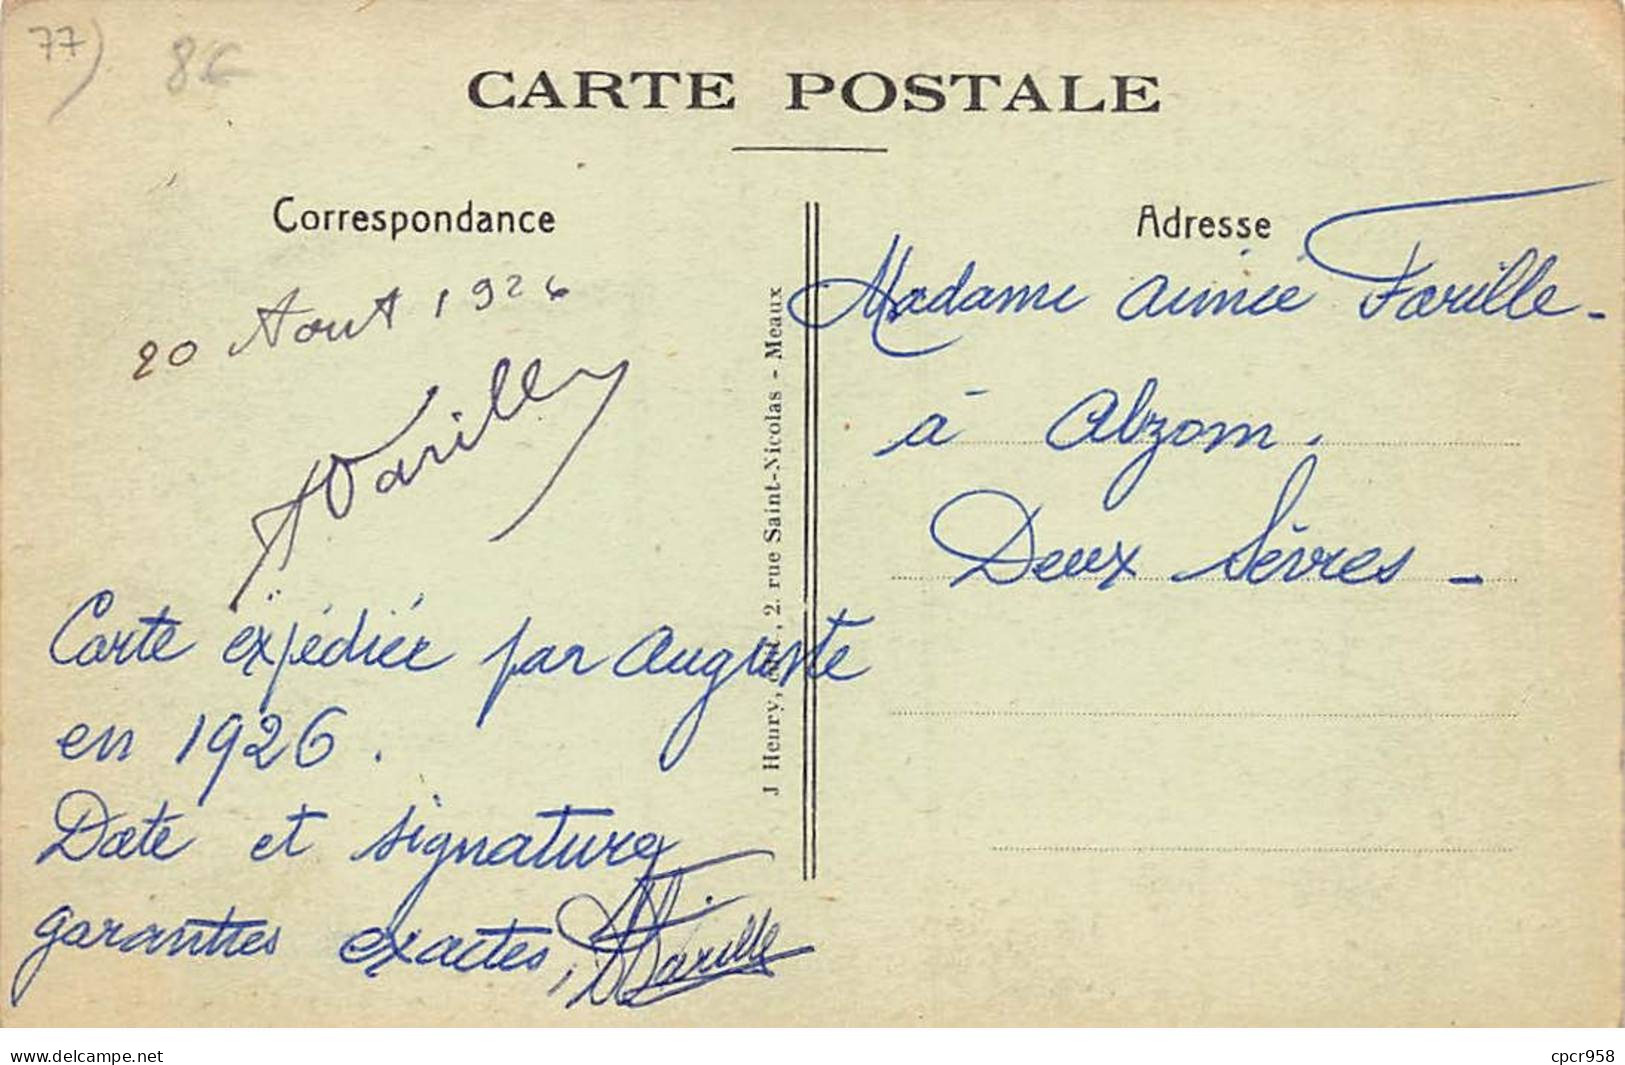 77)
8€
CARTE POSTALE
Correspondance
20 Aout 1926
Carte expédiée par Auguste
en 1926.
Date et signature
garanties exactes,
J Henry, édit., 2. rue Saint-Nicolas - Meaux
Adresse
Madame Aimée Farille -
à Alzom.
Deux Sèvres -
www.delcampe.net
cpcr958